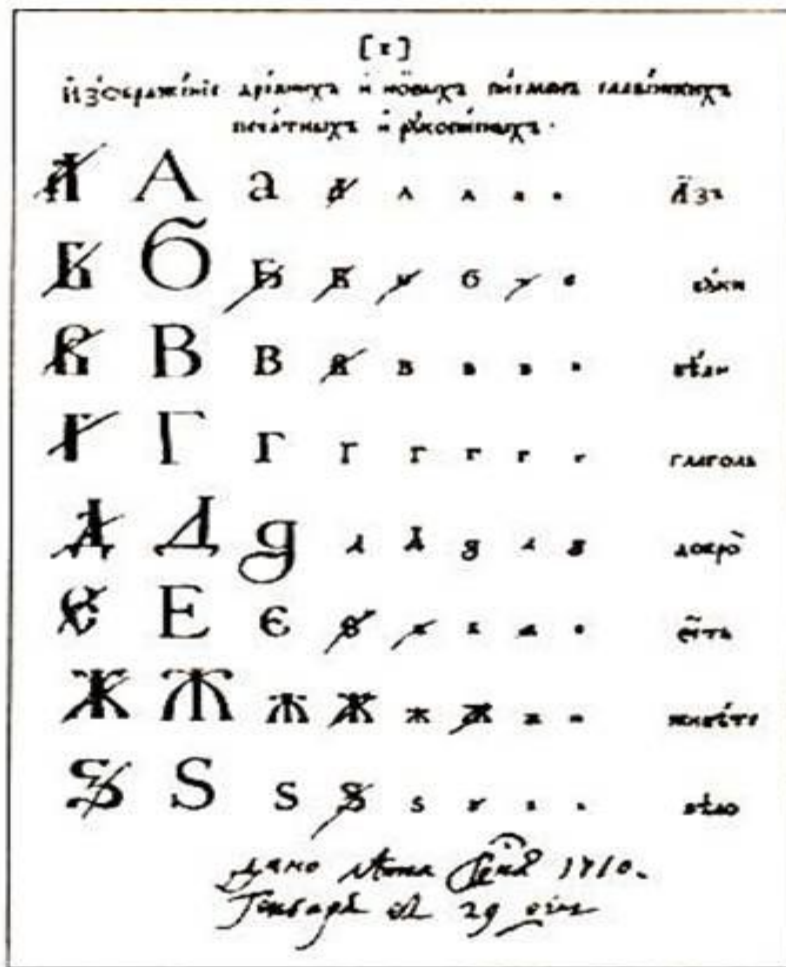 [ І ]
И҆зѡбраже́нїе дре́внихъ и҆ но́выхъ пи́сменъ славе́нскихъ
печа́тныхъ и҆ рꙋкопи́сныхъ.
А А а а а а а а А҆́зъ
Б б Б Б б б б бꙋ́ки
В В в в в в в в вѣ́ди
Г Г г г г г г г глаго́ль
Д Д д д д д д д добро̀
Є Е є е е е е є҆́сть
Ж Ж ж ж ж ж ж ж живѣ́те
Ѕ Ѕ ѕ ѕ ѕ ѕ ѕ ѕ ѕѣлѡ̀
1710.
29